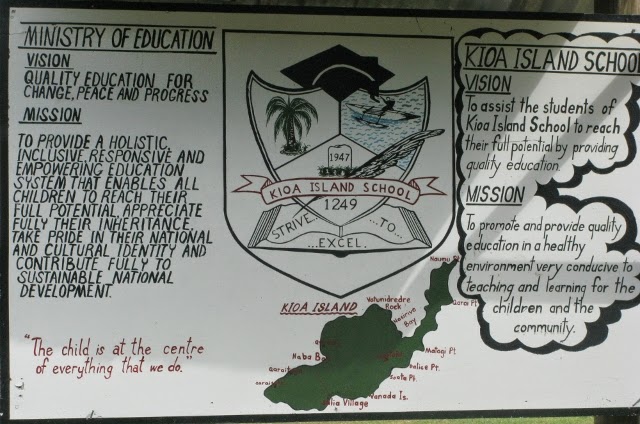 MINISTRY OF EDUCATION
VISION
QUALITY EDUCATION FOR
CHANGE, PEACE AND PROGRESS
MISSION
TO PROVIDE A HOLISTIC,
INCLUSIVE, RESPONSIVE AND
EMPOWERING EDUCATION
SYSTEM THAT ENABLES ALL
CHILDREN TO REACH THEIR
FULL POTENTIAL, APPRECIATE
FULLY THEIR INHERITANCE,
TAKE PRIDE IN THEIR NATIONAL
AND CULTURAL IDENTITY AND
CONTRIBUTE FULLY TO
SUSTAINABLE NATIONAL
DEVELOPMENT.
"The child is at the centre
of everything that we do."
1947
KIOA ISLAND SCHOOL
1249
STRIVE ... ... TO ...
... EXCEL.
KIOA ISLAND
Naumu Pt.
Vatunidredre
Rock
Naserive
Bay
Matagi Pt.
Vanada Is.
Village
KIOA ISLAND SCHOOL
VISION
To assist the students of
Kioa Island School to reach
their full potential by providing
quality education.
MISSION
To promote and provide quality
education in a healthy
environment very conducive to
teaching and learning for the
children and the
community.